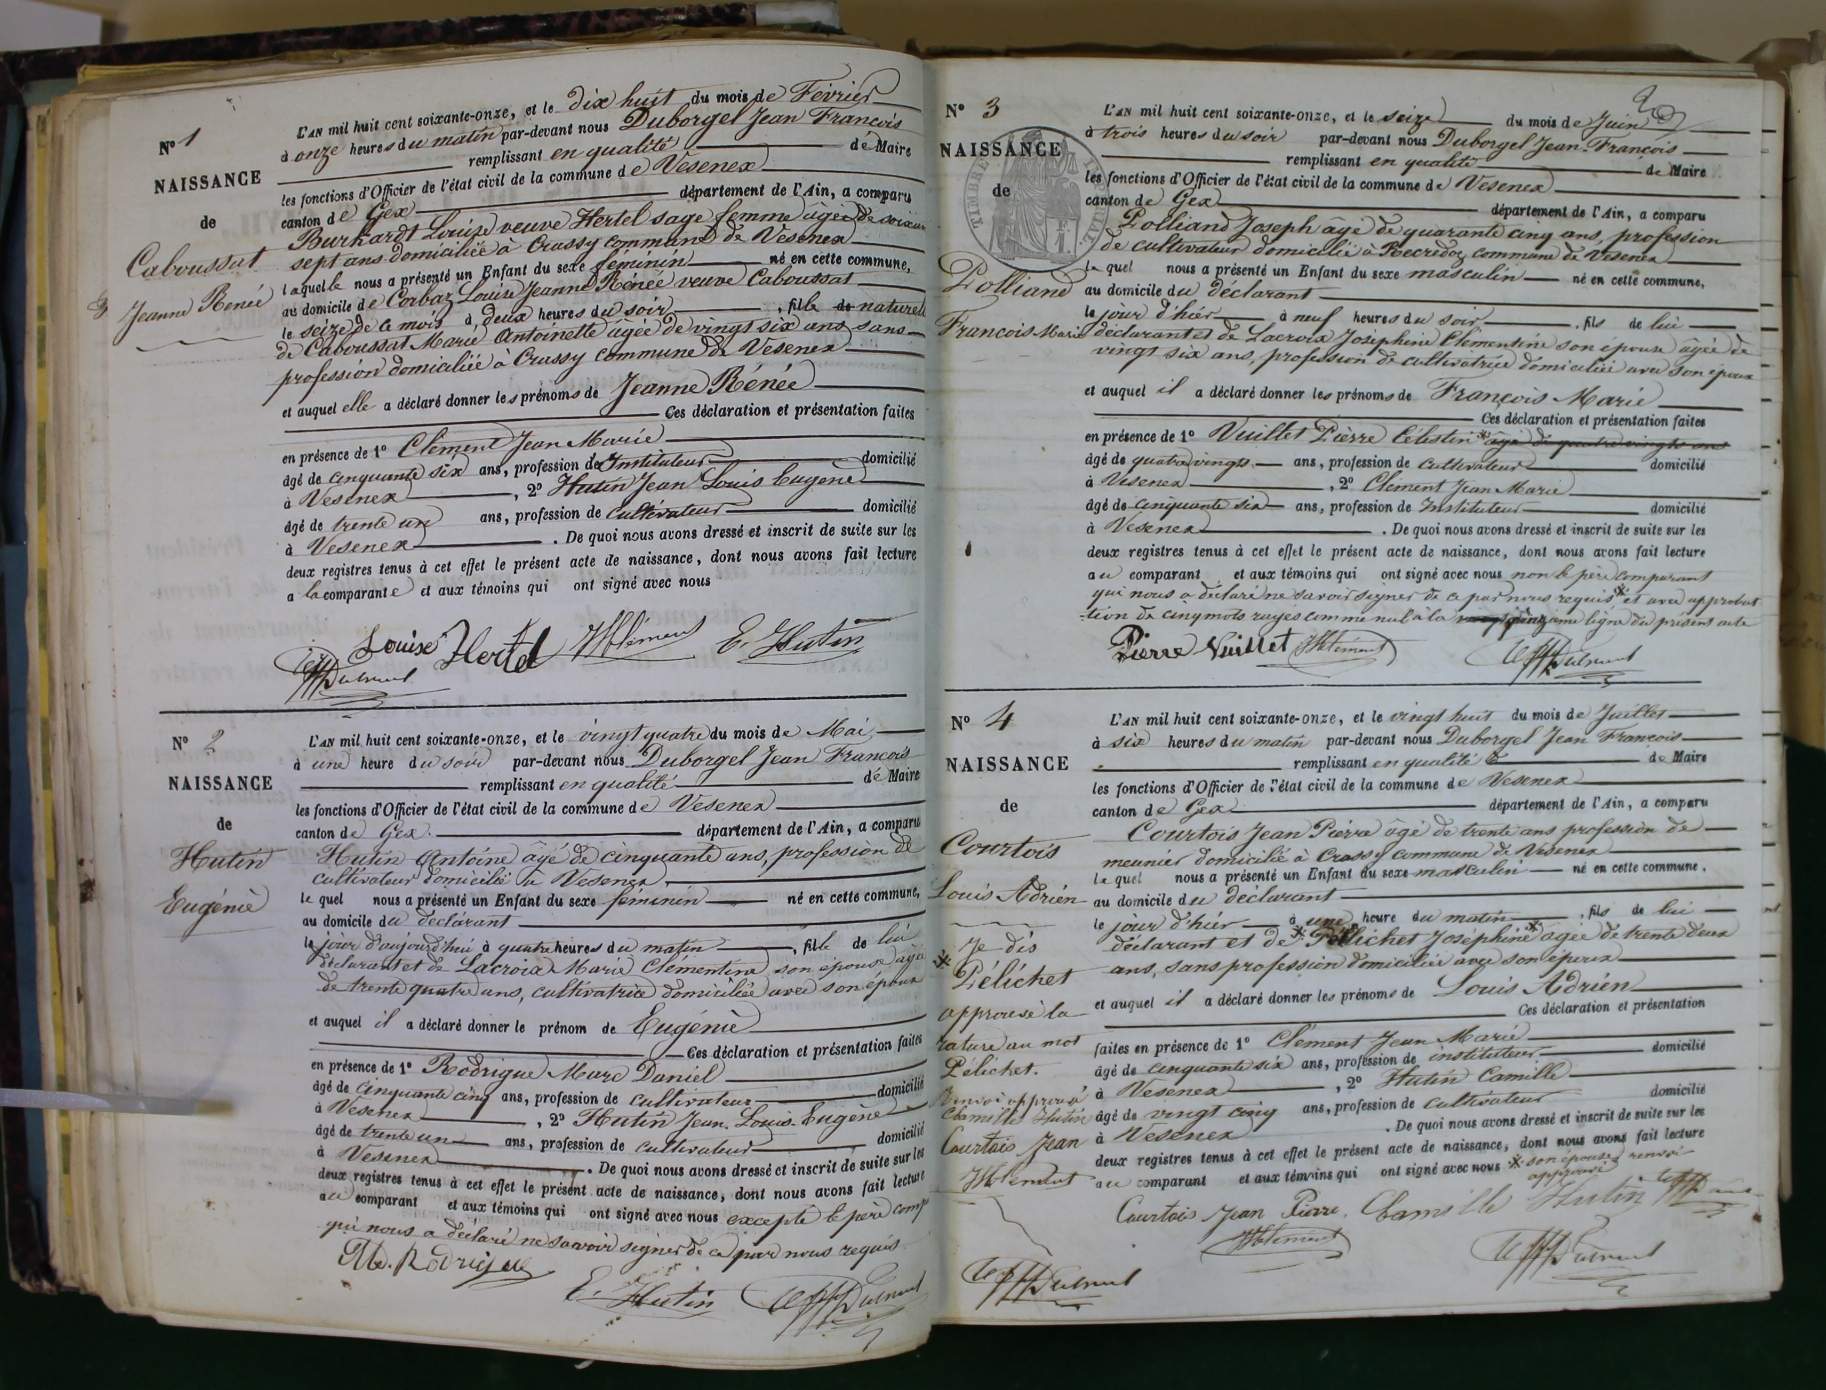 N° 1
NAISSANCE
de
Caboussat
Jeanne Renée
L'AN mil huit cent soixante-onze, et le dix huit du mois de Février
à onze heures du matin par-devant nous Duborgel Jean François
remplissant en qualité de Maire
les fonctions d'Officier de l'état civil de la commune de Vesenex
canton de Gex département de l'Ain, a comparu
Burhardt Louise veuve Hertel sage femme âgée de soixante
sept ans domiciliée à Crassy commune de Vesenex
laquelle nous a présenté un Enfant du sexe féminin né en cette commune,
au domicile de Corbaz Louise Jeanne Rénée veuve Caboussat
le seize de ce mois à deux heures du soir, fille de naturelle
de Caboussat Marie Antoinette âgée de vingt six ans sans
profession domiciliée à Crassy commune de Vesenex
et auquel elle a déclaré donner les prénoms de Jeanne Rénée
Ces déclaration et présentation faites
en présence de 1° Clément Jean Marie
âgé de cinquante six ans, profession de Instituteur domicilié
à Vesenex, 2° Hutin Jean Louis Eugène
âgé de trente un ans, profession de cultivateur domicilié
à Vesenex. De quoi nous avons dressé et inscrit de suite sur les
deux registres tenus à cet effet le présent acte de naissance, dont nous avons fait lecture
a la comparante et aux témoins qui ont signé avec nous
Louise Hertel JMClément E. Hutin
N° 2
NAISSANCE
de
Hutin
Eugénie
L'AN mil huit cent soixante-onze, et le vingt quatre du mois de Mai
à une heure du soir par-devant nous Duborgel Jean François
remplissant en qualité de Maire
les fonctions d'Officier de l'état civil de la commune de Vesenex
canton de Gex département de l'Ain, a comparu
Hutin Antoine âgé de cinquante ans, profession de
cultivateur domicilié à Vesenex
le quel nous a présenté un Enfant du sexe féminin né en cette commune,
au domicile du déclarant
le jour d'aujourd'hui à quatre heures du matin, fille de lui
déclarant et de Lacroix Marie Clémentine son épouse âgée
de trente quatre ans, cultivatrice domiciliée avec son époux
et auquel il a déclaré donner le prénom de Eugénie
Ces déclaration et présentation faites
en présence de 1° Rodrigue Marc Daniel
âgé de cinquante cinq ans, profession de cultivateur domicilié
à Vesenex, 2° Hutin Jean Louis Eugène
âgé de trente un ans, profession de cultivateur domicilié
à Vesenex. De quoi nous avons dressé et inscrit de suite sur les
deux registres tenus à cet effet le présent acte de naissance, dont nous avons fait lecture
au comparant et aux témoins qui ont signé avec nous excepté le père comp
qui nous a déclaré ne savoir signer de ce par nous requis
Md. Rodrigue
E. Hutin
N° 3
NAISSANCE
de
TIMBRE IMPERIAL
Polliand
François Marie
L'AN mil huit cent soixante-onze, et le seize du mois de Juin
à trois heures du soir par-devant nous Duborgel Jean-François
remplissant en qualité de Maire
les fonctions d'Officier de l'état civil de la commune de Vesenex
canton de Gex département de l'Ain, a comparu
Polliand Joseph âgé de quarante cinq ans, profession
de cultivateur domicilié à Recredoz commune de Vesenex
le quel nous a présenté un Enfant du sexe masculin né en cette commune,
au domicile du déclarant
le jour d'hier à neuf heures du soir, fils de lui
déclarant et de Lacroix Joséphine Clémentine son épouse âgée de
vingt six ans, profession de cultivatrice domiciliée avec son époux
et auquel il a déclaré donner les prénoms de François Marie
Ces déclaration et présentation faites
en présence de 1° Vuillet Pierre Célestin * âgé de quatre vingts ans
âgé de quatre vingts ans, profession de cultivateur domicilié
à Vesenex, 2° Clément Jean Marie
âgé de cinquante six ans, profession de Instituteur domicilié
à Vesenex. De quoi nous avons dressé et inscrit de suite sur les
deux registres tenus à cet effet le présent acte de naissance, dont nous avons fait lecture
au comparant et aux témoins qui ont signé avec nous non le père comparant
qui nous a déclaré ne savoir signer de ce par nous requis * et avec approbat
-tion de cinq mots rayés comme nul à la ligne du présent acte
Pierre Vuillet JMClément
N° 4
NAISSANCE
de
Courtois
Louis Adrien
Je dis
* Pélichet
approuvé la
rature au mot
Pélichet.
Renvoi approuvé
Camille Hutin
Courtois Jean
JMClément
L'AN mil huit cent soixante-onze, et le vingt huit du mois de Juillet
à six heures du matin par-devant nous Duborgel Jean François
remplissant en qualité de Maire
les fonctions d'Officier de l'état civil de la commune de Vesenex
canton de Gex département de l'Ain, a comparu
Courtois Jean Pierre âgé de trente ans profession de
meunier domicilié à Crassy commune de Vesenex
le quel nous a présenté un Enfant du sexe masculin né en cette commune,
au domicile du déclarant
le jour d'hier à une heure du matin, fils de lui
déclarant et de * Pélichet Joséphine * agée de trente deux
ans, sans profession domiciliée avec son époux
et auquel il a déclaré donner les prénoms de Louis Adrien
Ces déclaration et présentation
faites en présence de 1° Clément Jean Marie
âgé de cinquante six ans, profession de instituteur domicilié
à Vesenex, 2° Hutin Camille
âgé de vingt cinq ans, profession de cultivateur domicilié
à Vesenex. De quoi nous avons dressé et inscrit de suite sur les
deux registres tenus à cet effet le présent acte de naissance, dont nous avons fait lecture
au comparant et aux témoins qui ont signé avec nous * son épouse renvoi
approuvé
Courtois Jean Pierre. Camille Hutin
JMClément